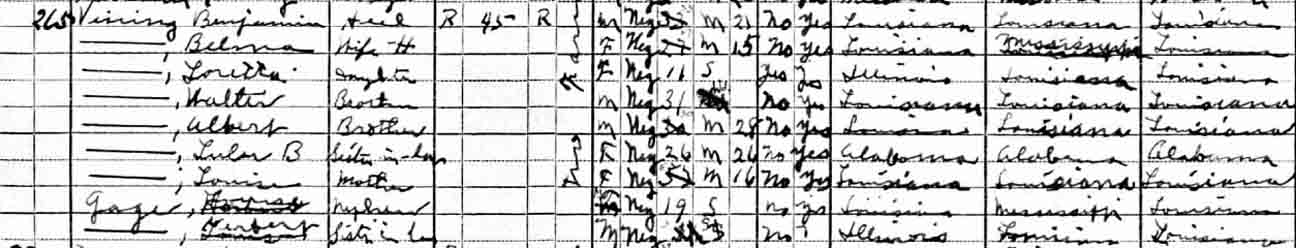 265 Vining Benjamin Head R 45 R M Neg M 21 No Yes Louisiana Louisiana Louisiana
——, Belma Wife-H F Neg 27 M 15 No Yes Louisiana Mississippi Louisiana
——, Loretta Daughter F Neg 11 S Yes Yes Illinois Louisiana Louisiana
——, Walter Brother M Neg 31 No Yes Louisiana Louisiana Louisiana
——, Albert Brother M Neg 30 M 28 No Yes Louisiana Louisiana Louisiana
——, Lular B Sister-in-law F Neg 26 M 26 No Yes Alabama Alabama Alabama
——, Louise Mother F Neg 52 M 16 No Yes Louisiana Louisiana Louisiana
Gage, Nephew Neg 19 S No Yes Mississippi Louisiana
——, Herbert Sister in law M Neg S No Illinois Louisiana Louisiana